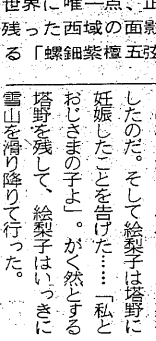 世界に唯一点の、正
た西域の面影
残る「螺鈿紫檀五弦
したのだ。そして絵梨子は塔野に
妊娠したことを告げた……「私と
おじさまの子よ」。がく然とする
塔野を残して、絵梨子はいっきに
雪山を滑り降りて行った。